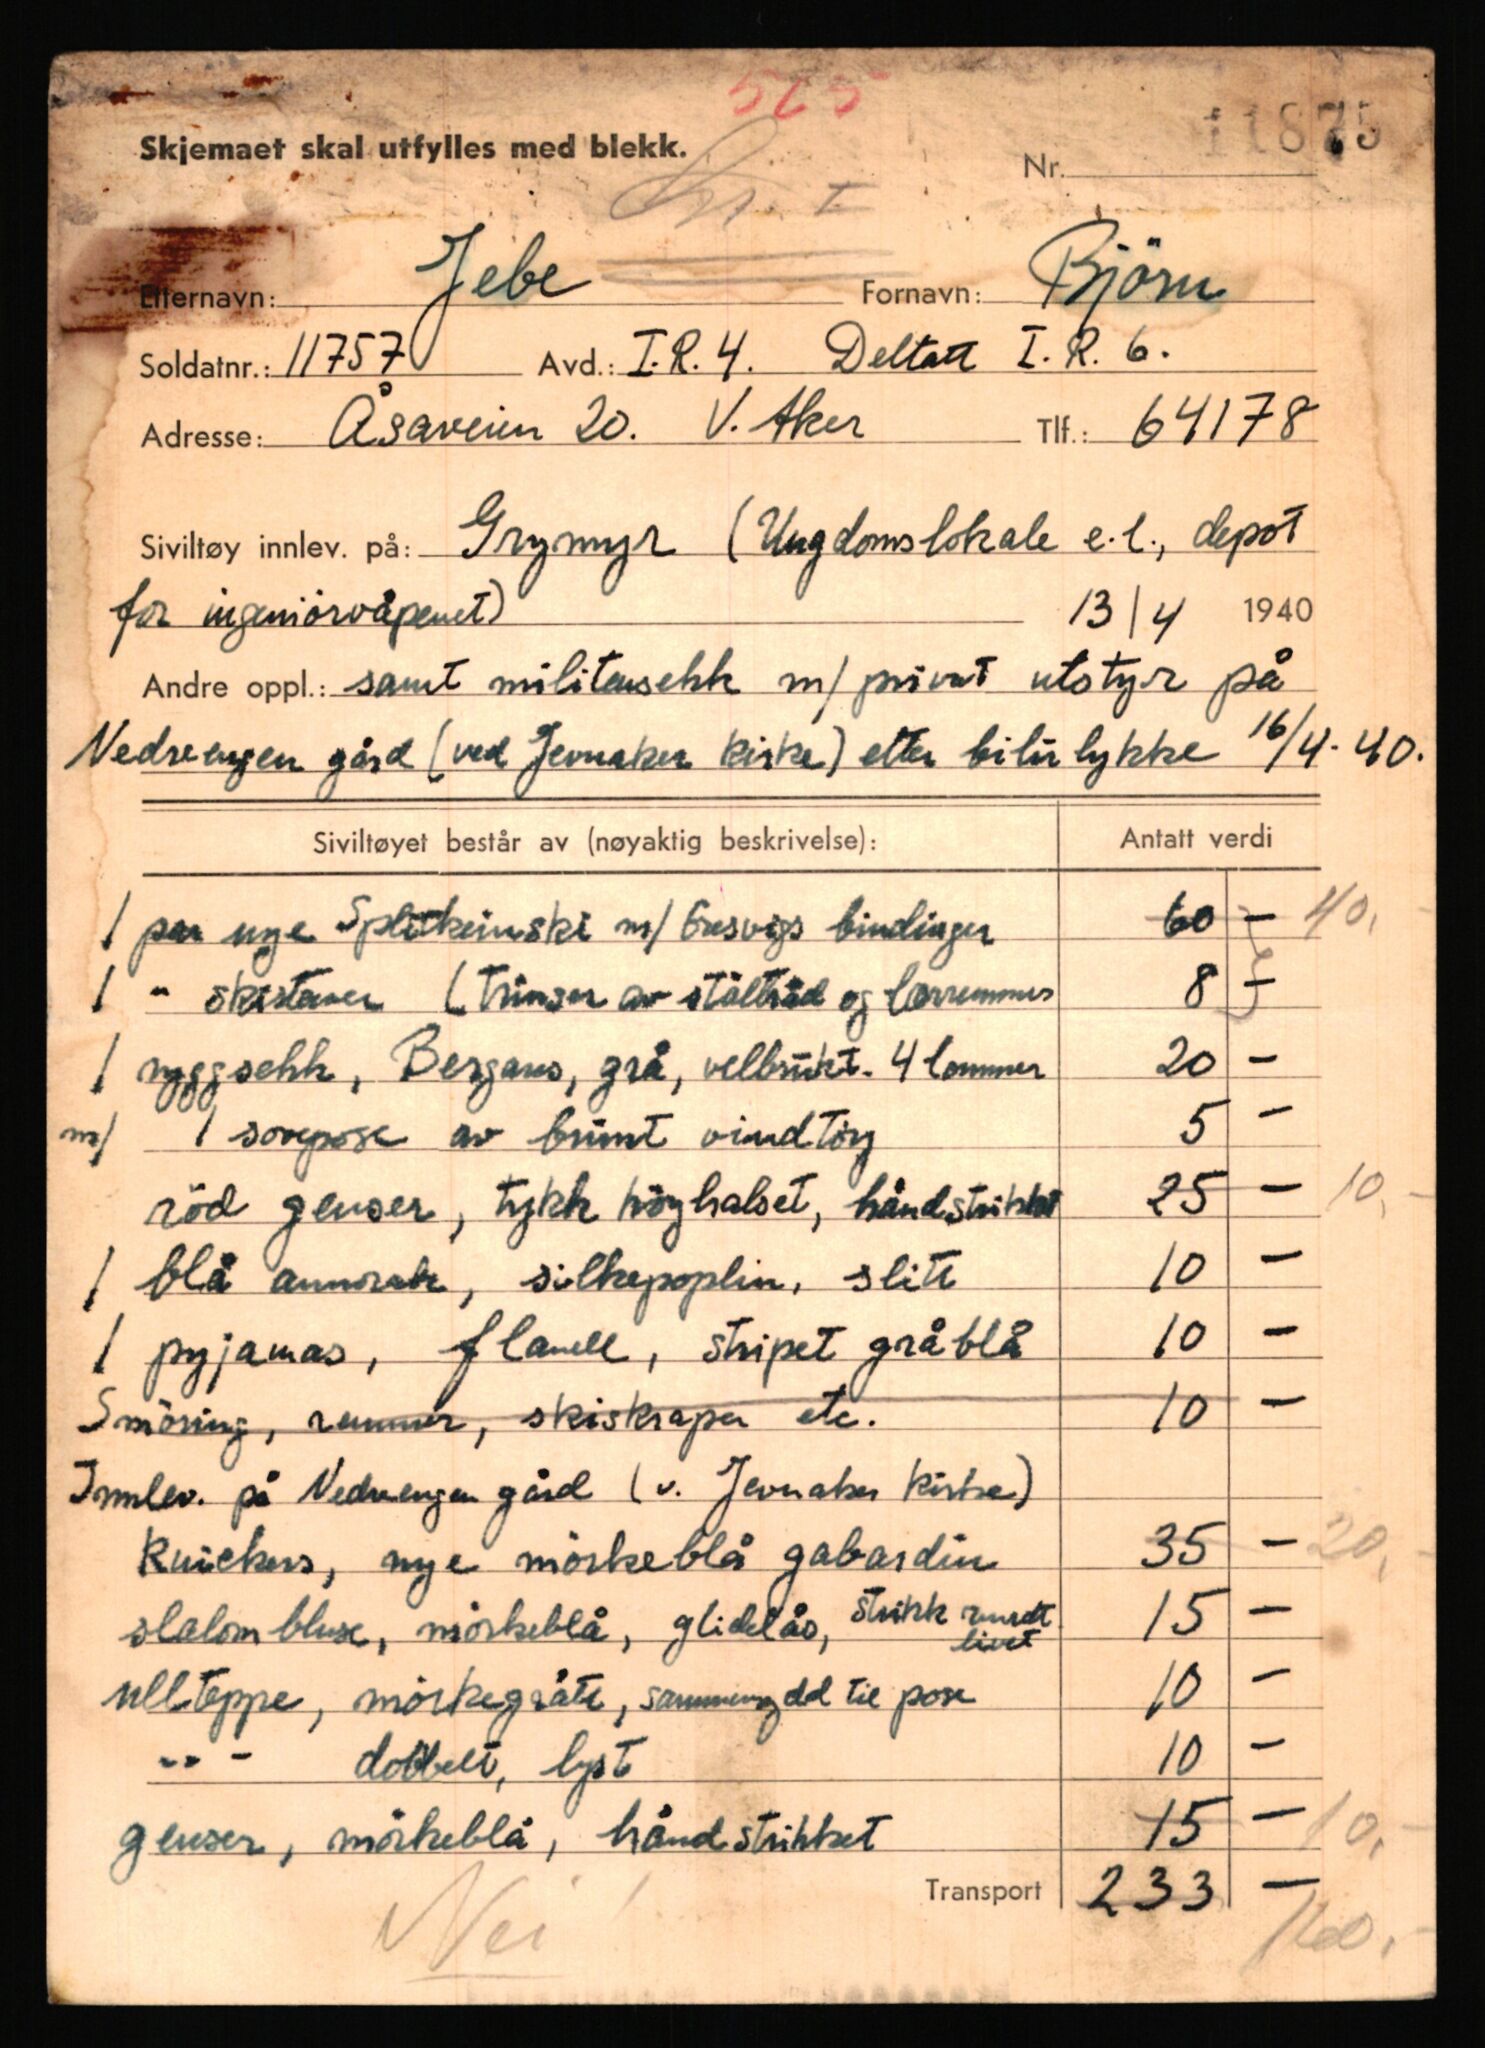 565
Skjemaet skal utfylles med blekk.
Nr. 11875
Etternavn: Jebe Fornavn: Björn
Soldatnr.: 11757 Avd.: I.R.4. Deltatt I.R.6.
Adresse: Åsaveien 20. V. Aker Tlf.: 64178
Siviltøy innlev. på: Grymyr (Ungdomslokale e.l., depot
for ingeniörvåpenet) 13/4 1940
Andre oppl.: samt militærsekk m/ privat utstyr på
Nedrengen gård (ved Jevnaker kirke) etter bilulykke 16/4-40.
Siviltøyet består av (nøyaktig beskrivelse): Antatt verdi
1 par nye Splitkeinski m/ Gresvigs bindinger 60 - 40,-
1 " skistaver (trinser av ståltråd og lærremmer 8 -
1 ryggsekk, Bergans, grå, velbrukt. 4 lommer 20 -
m/ 1 sovepose av brunt vindtöy 5 -
röd genser, tykk höyhalset, håndstrikket 25 - 10,-
1 blå annorakk, silkepoplin, slitt 10 -
1 pyjamas, flanell, stripet gråblå 10 -
Smöring, remmer, skiskraper etc. 10 -
Innlev. på Nedrengen gård (v. Jevnaker kirke)
Knickers, nye mörkeblå gabardin 35 - 20,-
slalombluse, mörkeblå, glidelås, strikk rundt livet 15 -
ullteppe, mörkegrått, sammensydd til pose 10 -
" - dobbelt, lyst 10 -
genser, mörkeblå, håndstrikket 15 - 10,-
Transport 233 -
Nei!
160,-